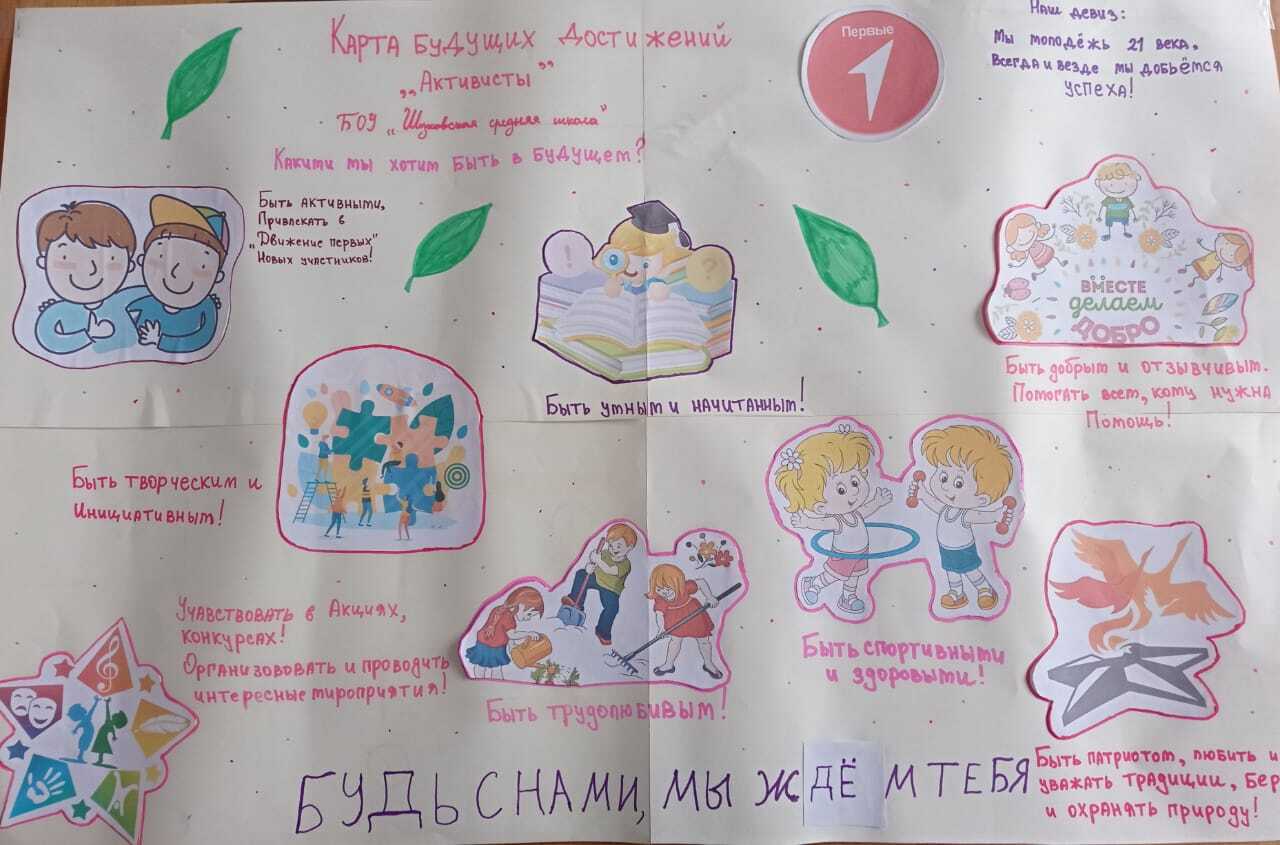 Карта будущих достижений
„Активисты”
БОУ „Шуховская средняя школа"
Какими мы хотим быть в будущем?
Первые
Наш девиз:
Мы молодёжь 21 века,
Всегда и везде мы добьёмся
успеха!
Быть активными,
Привлекать в
„Движение первых"
Новых участников!
Быть умным и начитанным!
ВМЕСТЕ
делаем
ДОБРО
Быть добрым и отзывчивым.
Помогать всем, кому нужна
Помощь!
Быть творческим и
Инициативным!
Учавствовать в Акциях,
конкурсах!
Организововать и проводить
интересные мироприятия!
Быть трудолюбивым!
Быть спортивными
и здоровыми!
Быть патриотом, любить и
уважать традиции, Бер
и охранять природу!
БУДЬ С НАМИ, МЫ ЖДЁМ ТЕБЯ